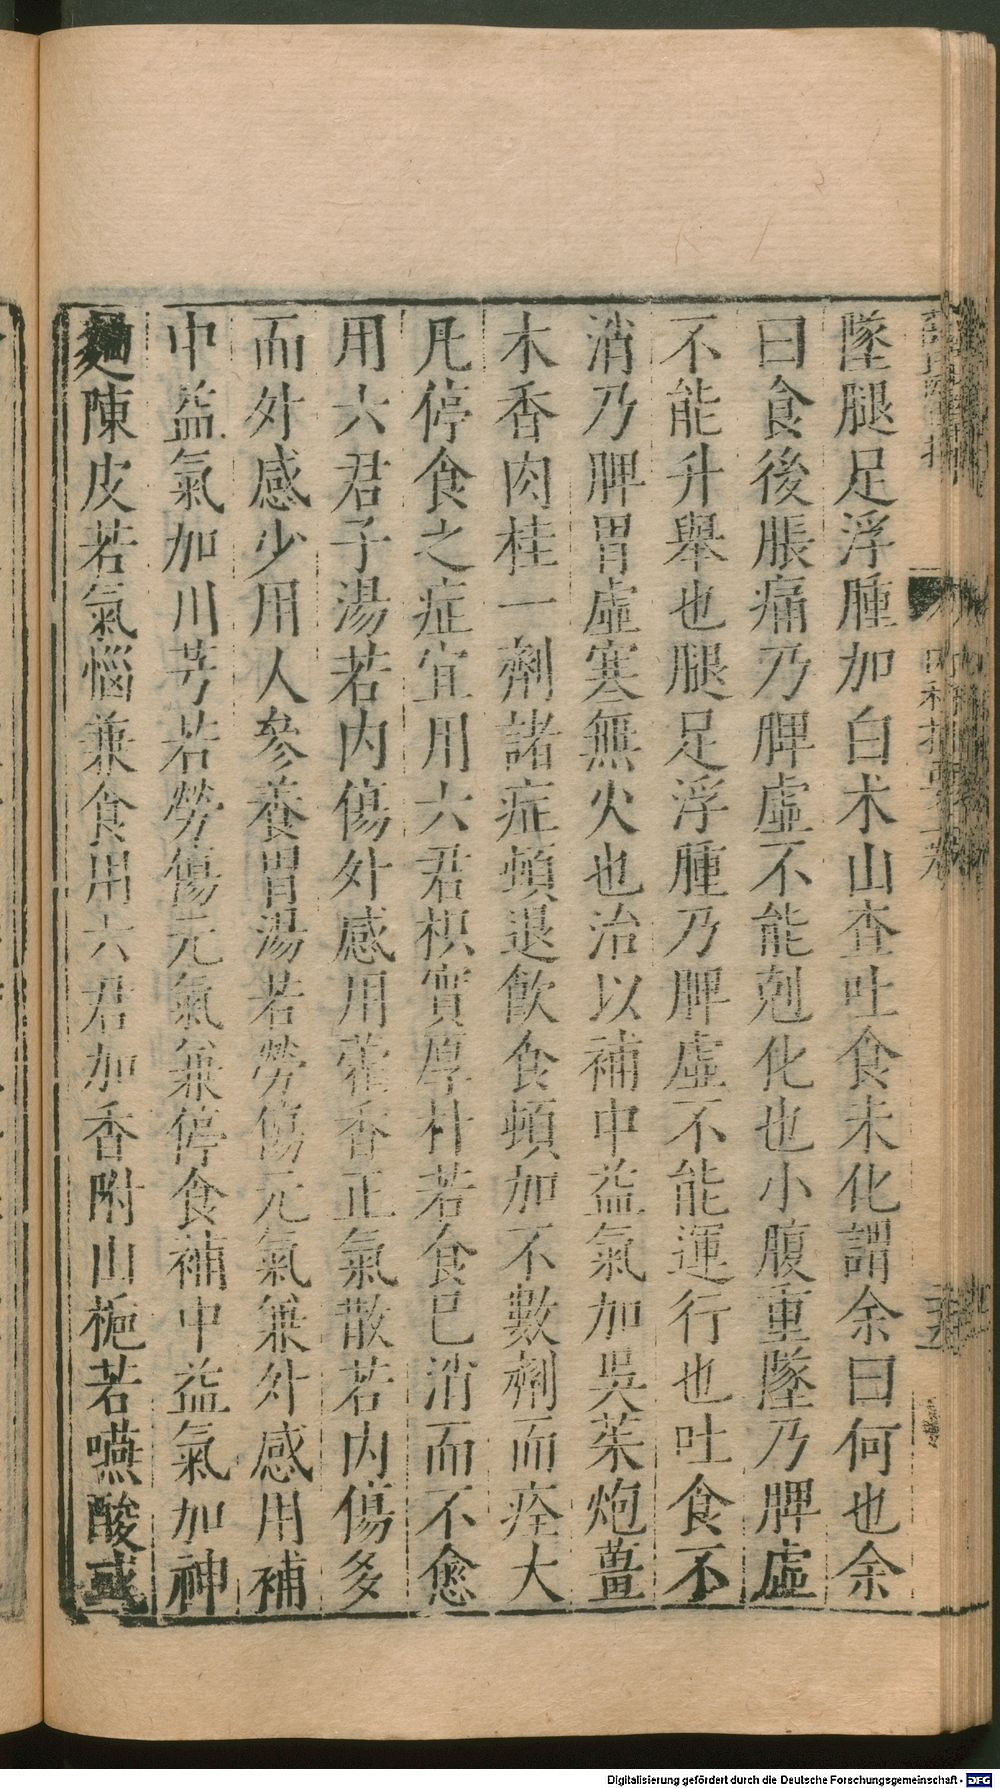 墜腿足浮腫加白朮山查吐食未化謂余曰何也余
曰食後脹痛乃脾虛不能剋化也小腹重墜乃脾虛
不能升舉也腿足浮腫乃脾虛不能運行也吐食不
消乃脾胃虛寒無火也治以補中益氣加吳茱炮薑
木香肉桂一劑諸症頓退飲食頓加不數劑而痊大
凡停食之症宜用六君枳實厚朴若食已消而不愈
用六君子湯若內傷外感用藿香正氣散若內傷多
而外感少用人參養胃湯若勞傷元氣兼外感用補
中益氣加川芎若勞傷元氣兼停食補中益氣加神
麯陳皮若氣惱兼食用六君加香附山梔若嚥酸或
Digitalisierung gefördert durch die Deutsche Forschungsgemeinschaft - DFG